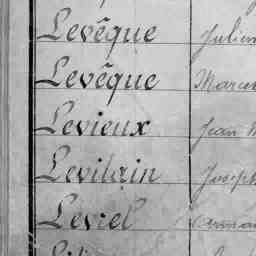 Levêque Julien
Levêque Marcel
Levieux Jean
Levilain Joseph
Levrel